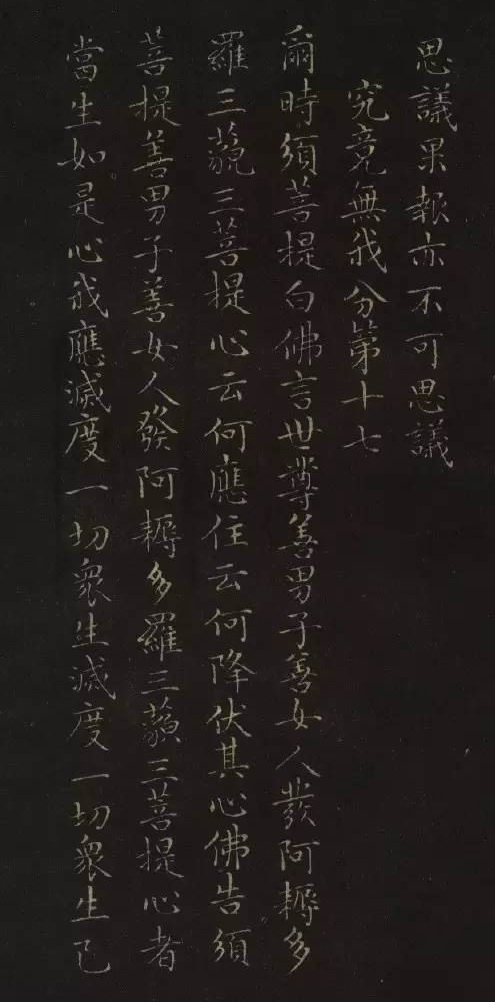 思議果報亦不可思議
究竟無我分第十七
爾時須菩提白佛言世尊善男子善女人發阿耨多
羅三藐三菩提心云何應住云何降伏其心佛告須
菩提善男子善女人發阿耨多羅三藐三菩提心者
當生如是心我應滅度一切眾生滅度一切眾生已